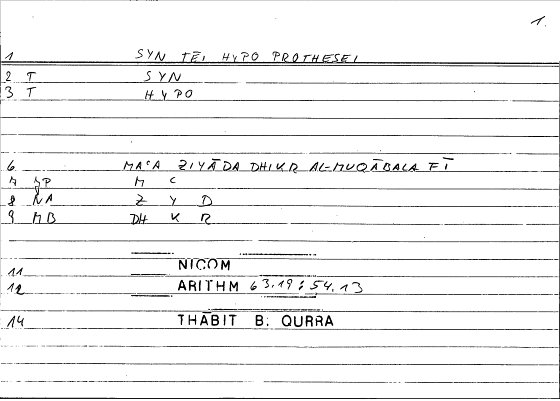 1.
1 SYN TĒI HYPO PROTHESEI
2 T SYN
3 T HYPO
6 MAʿA ZIYĀDA DHIKR AL-MUQĀBALA FĪ
7 JP M C
8 NA Z Y D
9 MB DH K R
11 NICOM
12 ARITHM 63.19 : 54.13
14 THĀBIT B. QURRA